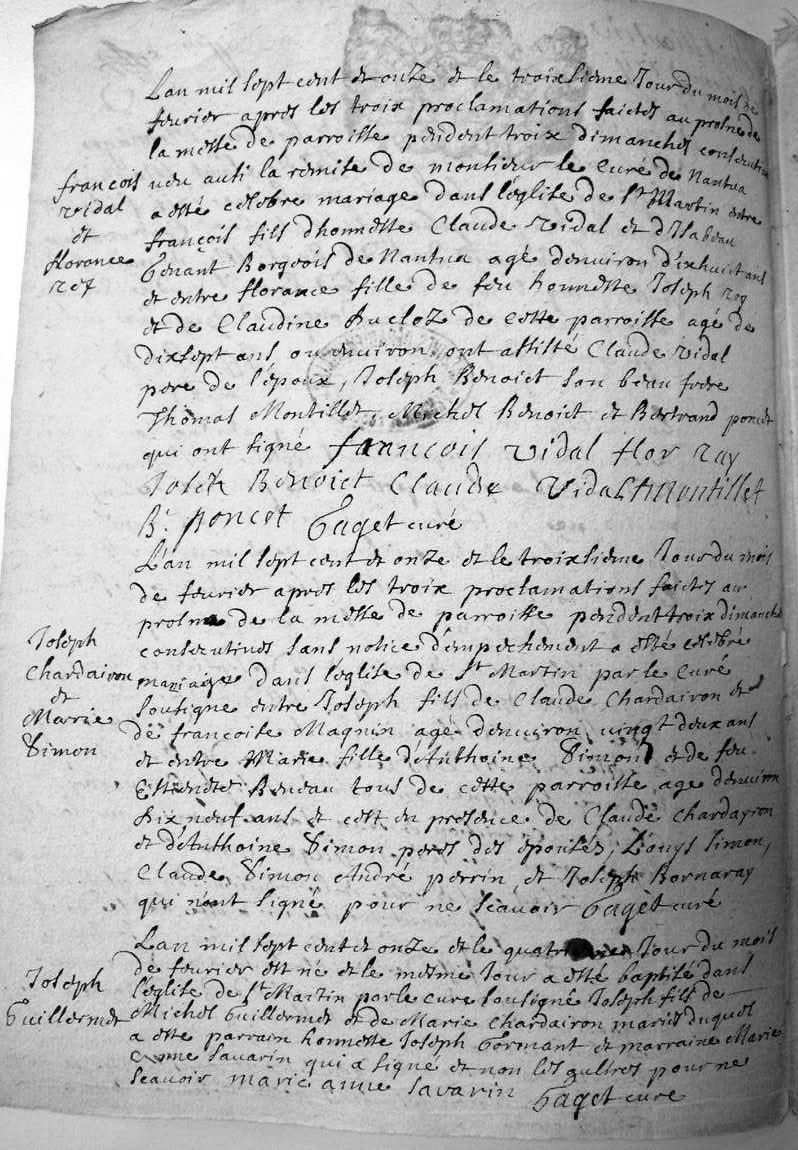 Lan mil sept cent et onze et le troixsieme Jour du mois de
feurier apres les troix proclamations faictes au prosne de
la messe de parroisse pendent troix dimanches consecutiues
ueu aussi la remise de monsieur le curé de Nantua
a esté celebre mariage dans l'eglise de St Martin entre
françois fils d'honneste Claude vidal et d'Isabeau
Genant Borgeois de Nantua agé denuiron dixhuict ans
et entre florance fille de feu honneste Joseph rey
et de Claudine Bucloz de cette parroisse agé de
dixsept ans ou enuiron, ont assisté Claude vidal
pere de l'epoux, Joseph Benoict son beau frere
Thomas Montillet, Michel Benoict et Bertrand poncet
qui ont signé françois vidal flor ray
Joseh Benoict Claude vidal tmontillet
B. poncet Gaget curé
françois
vidal
et
florance
rey
L'an mil sept cent et onze et le troixsieme Jour du mois
de feurier apres les troix proclamations faictes au
prosne de la messe de parroisse pendent troix dimanche
consecutiues sans notice d'empechement a esté celebré
mariage dans l'eglise de St Martin par le curé
soutigne entre Joseph fils de Claude Chardairon et
de françoise Magnin agé denuiron uingt deux ans
et entre Marie fille d'Anthoine Simon et de feu
Estiennete Beneau tous de cette parroisse age d'enuiron
Dixneuf ans et cest en presence de Claude Chardayron
et d'Anthoine Simon peres des epousés, Louys Simon,
Claude Simon André perrin, et Joseph Bornaray
qui n'ont signé pour ne scauoir Gaget curé
Joseph
Chardairon
et
Marie
Simon
Lan mil sept cent et onze et le quatrieme Jour du mois
de feurier est né et le mesme Jour a esté baptisé dans
l'eglise de St Martin par le cure soussigné Joseph fils de
Michel Guillermet et de Marie Chardairon mariés duquel
a este parrain honneste Joseph Gormant et marraine Marie
anne sauarin qui a signé et non les aultres pour ne
scauoir marie anne savarin Gaget cure
Joseph
Guillermet